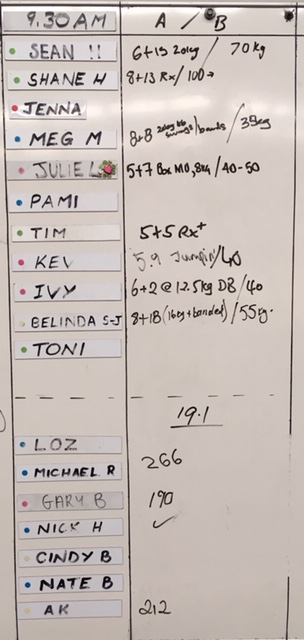 9.30 AM A / B
SEAN !! 6+15 20kg / 70kg
SHANE H 8+13 Rx / 100
JENNA
MEG M 8+8 20kg swings / bands / 35kg
JULIE L 5+7 Box MO, 8kg / 40-50
PAMI
TIM 5+5 Rx+
KEV 5.9 Jumpin / 40
IVY 6+2 @ 12.5kg DB / 40
BELINDA S-J 8+18 (16kg + banded) / 55kg.
TONI
19.1
LOZ
MICHAEL R 266
GARY B 190
NICK H ✓
CINDY B
NATE B
AK 212